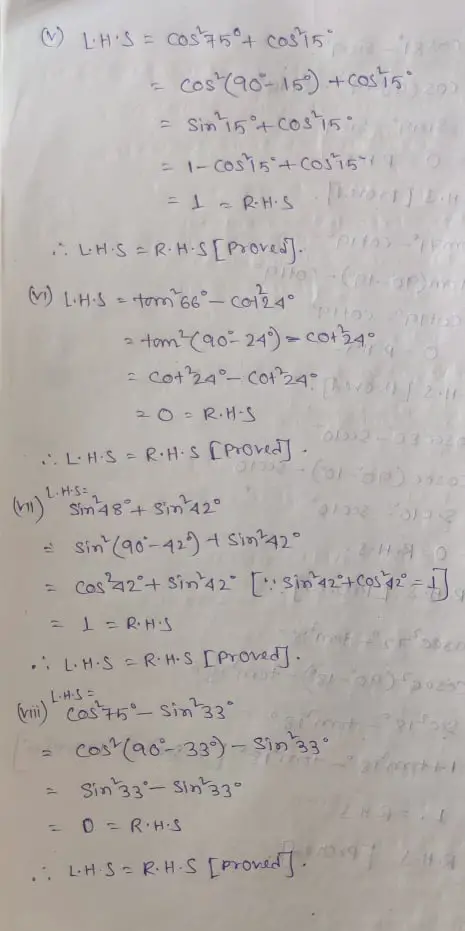 (v) L.H.S = cos²75° + cos²15°
= cos²(90°-15°) + cos²15°
= sin²15° + cos²15°
= 1 - cos²15° + cos²15°
= 1 = R.H.S
∴ L.H.S = R.H.S [Proved].
(vi) L.H.S = tan²66° - cot²24°
= tan²(90°-24°) - cot²24°
= cot²24° - cot²24°
= 0 = R.H.S
∴ L.H.S = R.H.S [Proved].
(vii) L.H.S =
sin²48° + sin²42°
= sin²(90°-42°) + sin²42°
= cos²42° + sin²42° [∵ sin²42° + cos²42° = 1]
= 1 = R.H.S
∴ L.H.S = R.H.S [Proved].
(viii) L.H.S =
cos²75° - sin²33°
= cos²(90°-33°) - sin²33°
= sin²33° - sin²33°
= 0 = R.H.S
∴ L.H.S = R.H.S [Proved].